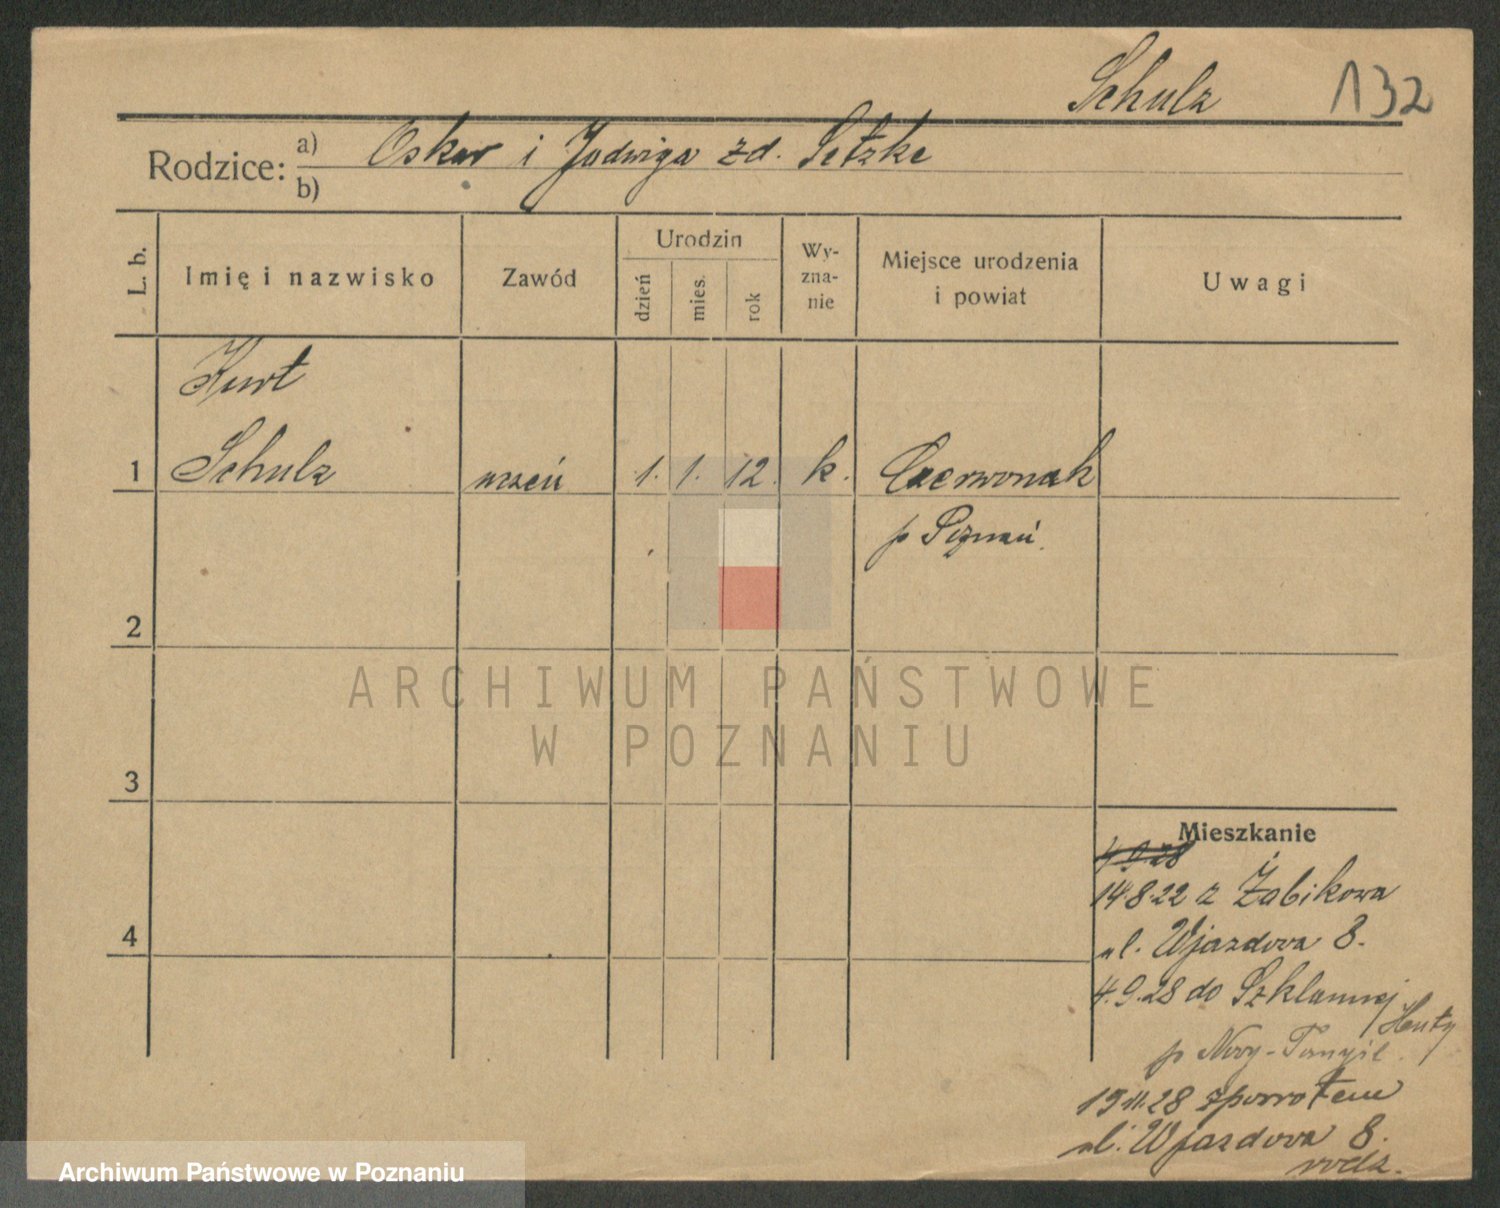 Schulz 132
Rodzice: a) Oskar i Jadwiga zd. Setzke
b)
L. b. Imię i nazwisko Zawód Urodzin dzień mies. rok Wyznanie Miejsce urodzenia i powiat Uwagi
Kurt
1 Schulz uczeń 1. 1. 12. k. Czerwonak
p Poznań.
2
ARCHIWUM PAŃSTWOWE
W POZNANIU
3
Mieszkanie
4.9.28
14.8.22 z Żabikowa
4
ul. Wjazdowa 8.
4.9.28 do Szklannej
Huty
p Nowy-Tomyśl.
15.11.28 zpowrotem
ul. Wjazdowa 8.
rodz.
Archiwum Państwowe w Poznaniu